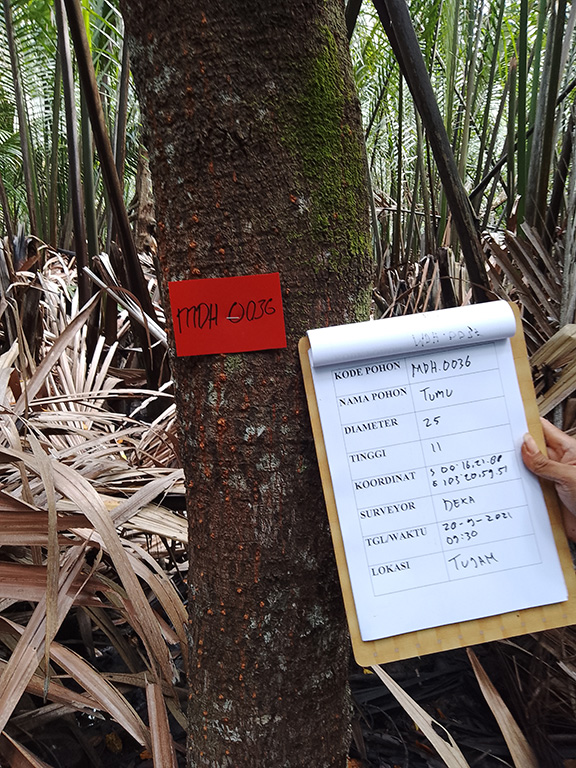 MDH 0036
KODE POHON MDH.0036
NAMA POHON TUMU
DIAMETER 25
TINGGI 11
KOORDINAT S 00.16.21.88
E 103.20.59.51
SURVEYOR DEKA
TGL/WAKTU 20-9-2021
09:30
LOKASI TUJAM